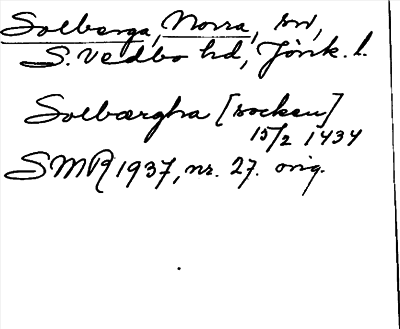 Solberga, Norra, sn,
S. Vedbo hd, Jönk. l.
Solbærgha [socken]
15/2 1434
SMR 1937, nr. 27. orig.